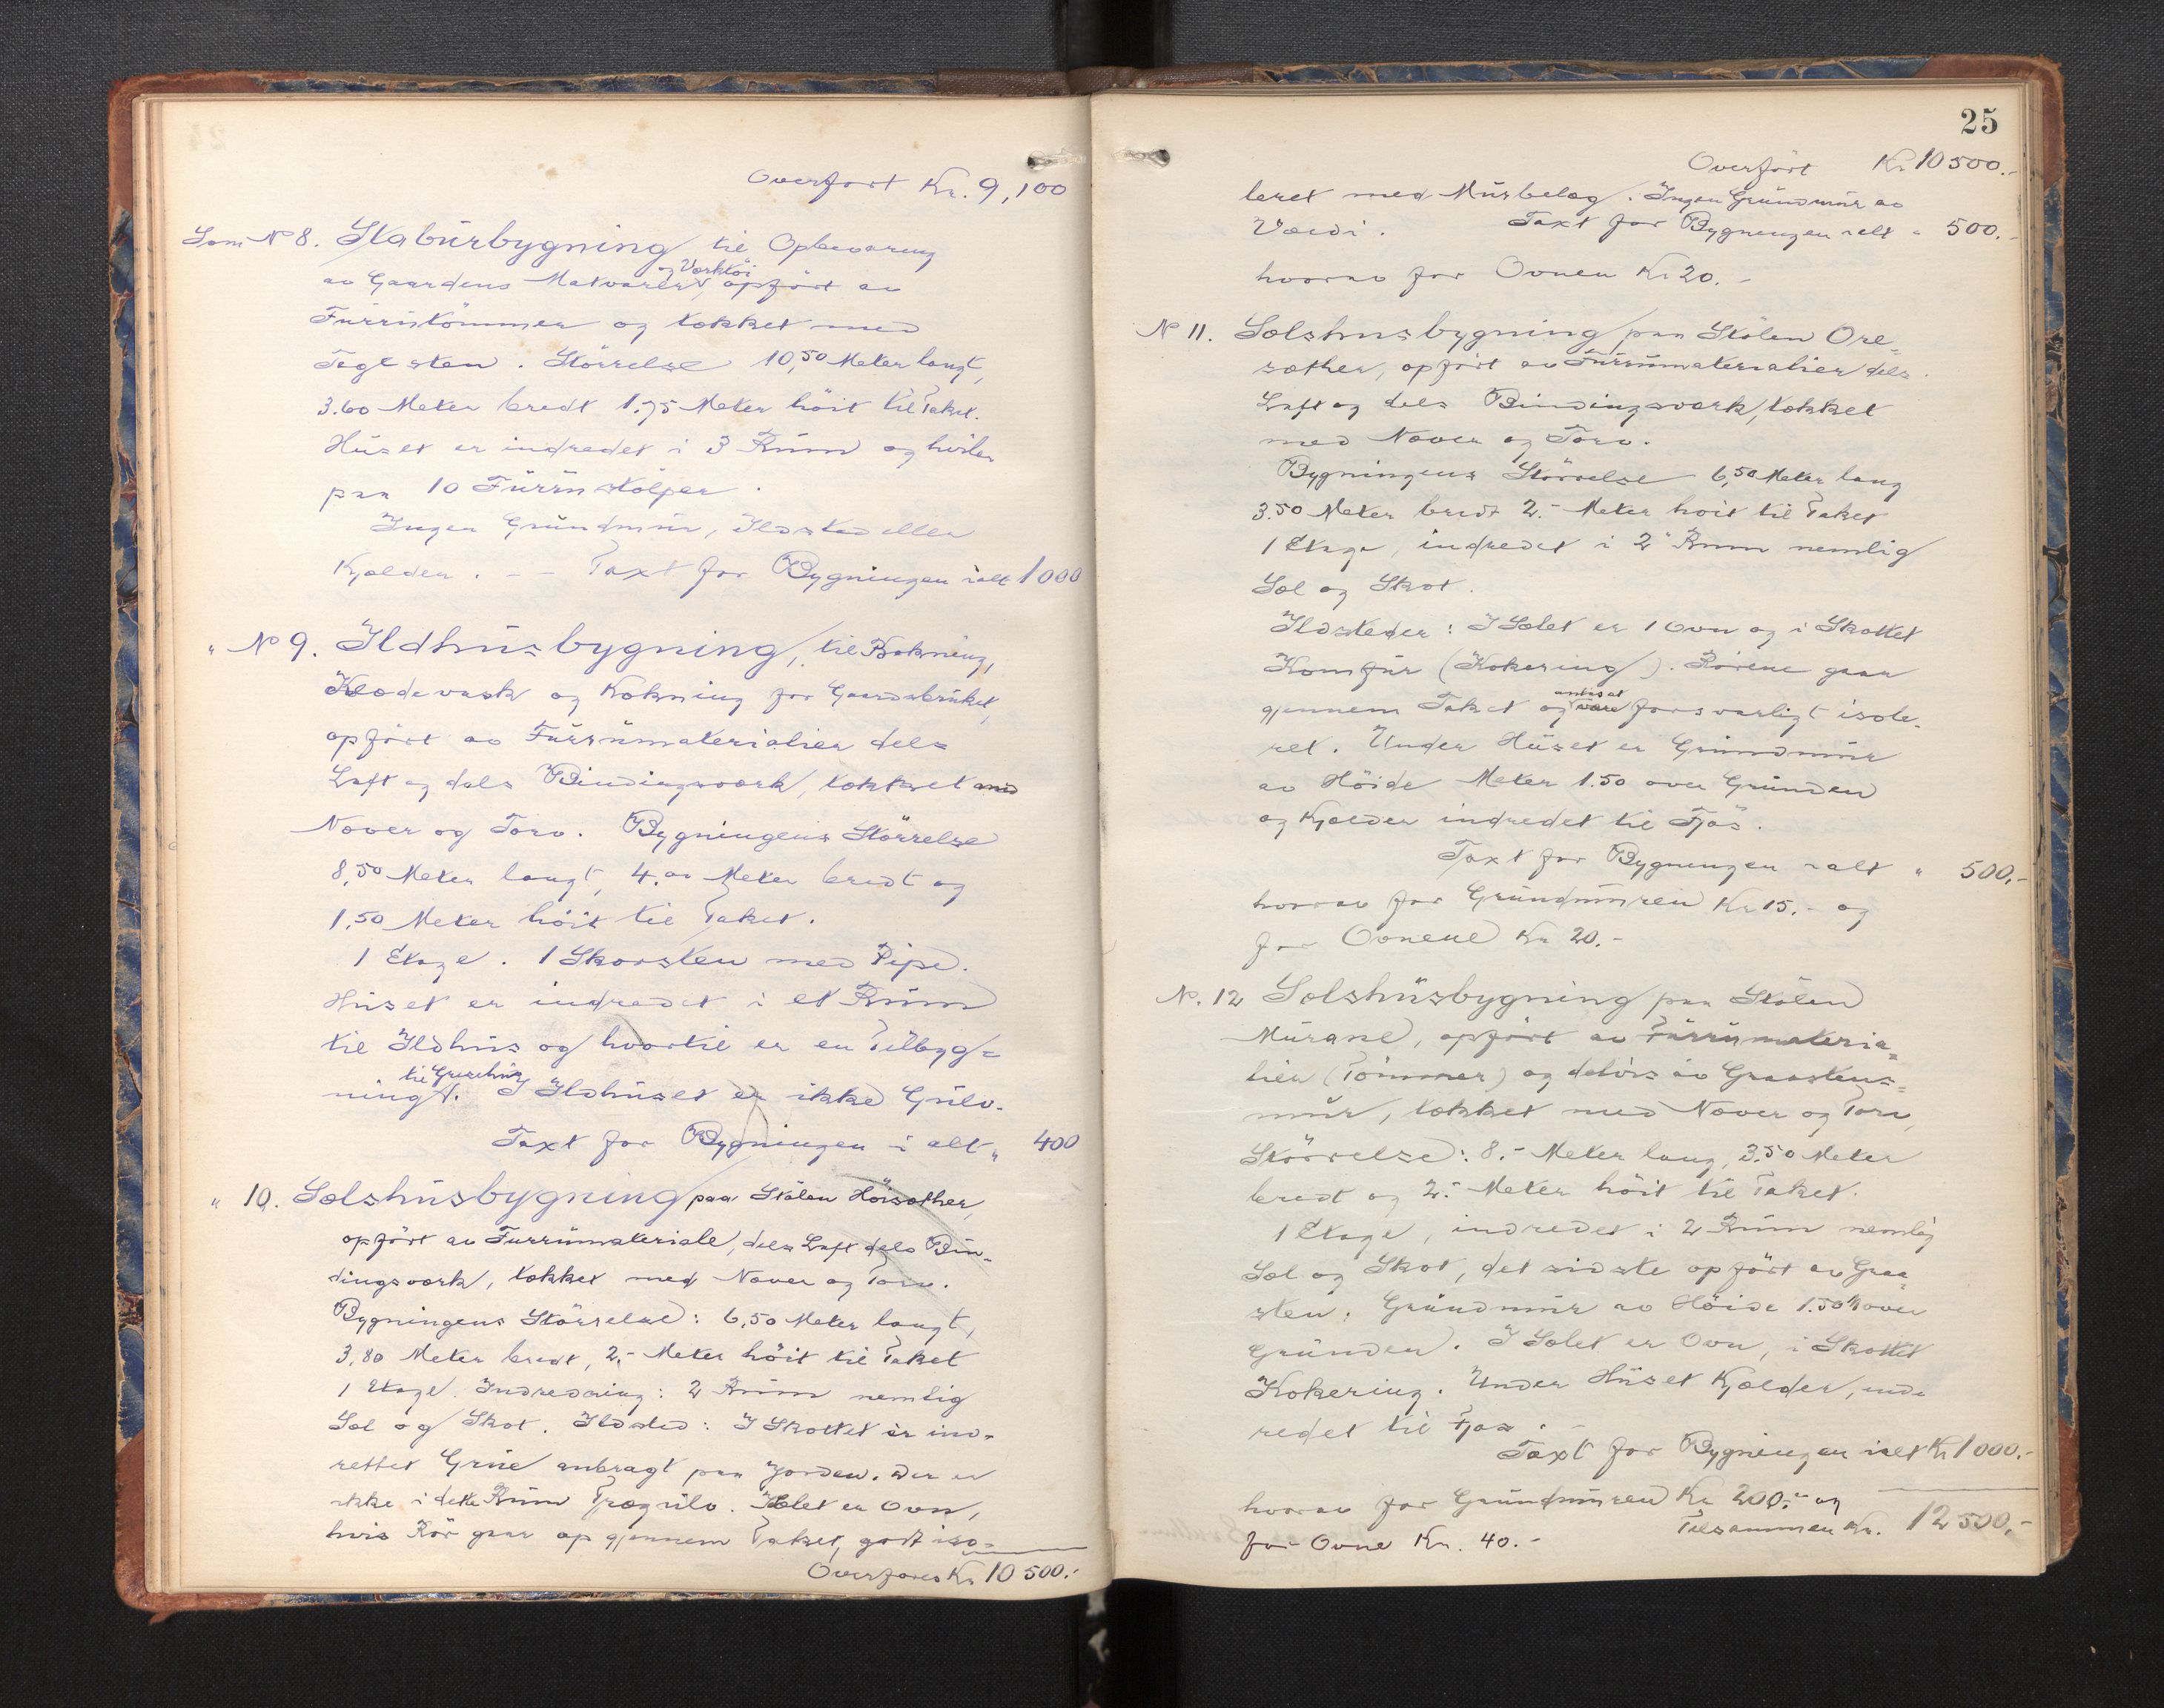 Overført Kr. 9,100
Som No 8. Staburbygning til Opbevaring
og Værktøi
av Gaardens Matvarer, opført av
Furritømmer og tækket med
Teglsten. Størrelse 10,50 Meter langt,
3.60 Meter bredt 1.75 Meter høit til Taket.
Huset er indredet i 3 Rum og hviler
paa 10 Furru stolper.
Ingen Grundmur, Ildsted eller
Kjælder. - - Taxt for Bygningen ialt 1000
" No 9. Ildhusbygning, til Bakning,
Klædevask og Kokning for Gaardsbruket,
opført av Furrumaterialier dels
Laft og dels Bindingsværk, tækket med
Næver og Torv. Bygningens Størrelse
8,50 Meter langt, 4.00 Meter bredt og
1,50 Meter høit til Taket.
1 Etage. 1 Skorsten med Pipe.
Huset er indredet i et Rum
til Ildhus og hvortil er en Tilbyg=
til Grisehus
ning. I Ildhuset er ikke Gulv.
Taxt for Bygningen i alt " 400
" 10. Sælshusbygning paa Stølen Høisæther,
opført av Furrumateriale, dels Laft dels Bin-
dingsværk, tækket med Næver og Torv.
Bygningens Størrelse: 6,50 Meter langt,
3,80 Meter bredt, 2.- Meter høit til Taket
1 Etage. Indredning: 2 Rum nemlig
Sel og Skot. Ildsted: I Skottet er ind-
rettet Grue anbragt paa Jorden. Der er
ikke i dette Rum Trægulv. I Sælet er Ovn,
hvis Rør gaar op gjennem Taket, godt iso=
Overføres Kr 10 500.-
25
Overført Kr 10500.-
leret med Murbelæg. Ingen Grundmur av
Værdi. Taxt for Bygningen ialt " 500.-
hvorav for Ovnen Kr 20.-
No 11. Sælshusbygning paa Stølen Ore=
sæther, opført av Furrumaterialier dels
Laft og dels Bindingsværk, tækket
med Næver og Torv.
Bygningens Størrelse 6,50 Meter lang
3.50 Meter bredt 2.- Meter høit til Taket
1 Etage, indredet i 2 Rum nemlig
Sæl og Skot.
Ildsteder: I Sælet er 1 Ovn og i Skottet
Komfur (Kokering). Rørene gaar
antas at
gjennem Taket og være forsvarligt isole-
ret. Under Huset er Grundmur
av Høide Meter 1.50 over Grunden
og Kjælder indredet til Fjøs.
Taxt for Bygningen ialt " 500.-
hvorav for Grundmuren Kr 15.- og
for Ovnene Kr 20.-
No. 12 Sælshusbygning paa Stølen
Murane, opført av Furrumateria=
lier (Tømmer) og delvis av Graastens=
mur, tækket med Næver og Torv,
Størrelse: 8.- Meter lang, 3.50 Meter
bredt og 2.- Meter høit til Taket.
1 Etage, indredet i 2 Rum nemlig
Sæl og Skot, det sidste opført av Graa=
sten. Grundmur av Høide 1.50 M over
Grunden. I Sælet er Ovn, i Skottet
Kokering. Under Huset Kjælder, inde
redet til Fjøs.
Taxt for Bygningen ialt Kr 1000.-
hvorav for Grundmuren Kr 200.- og
for Ovne Kr. 40.- Tilsammen Kr. 12500.-